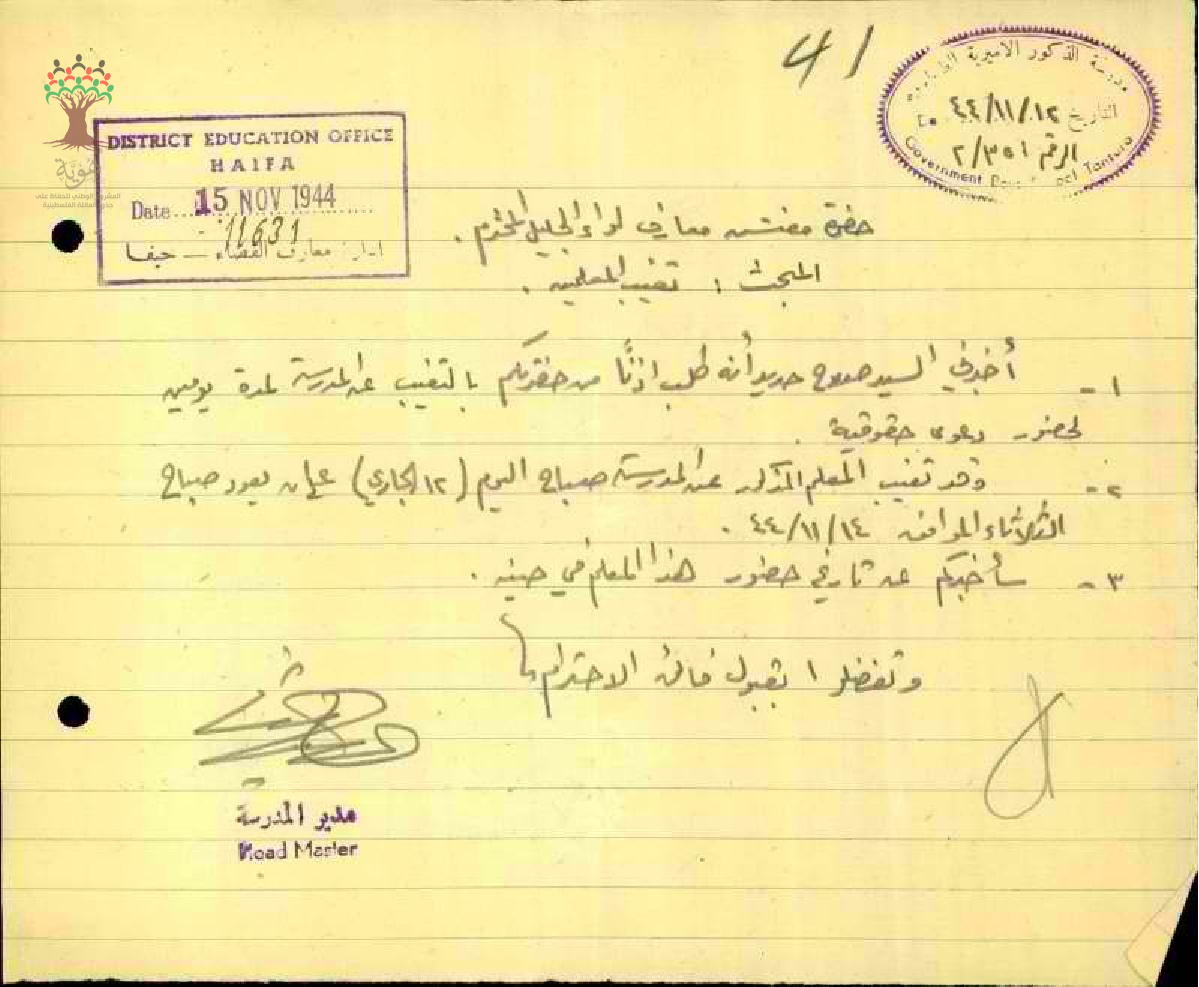 41
مدرسة الذكور الاميرية الطنطورة
التاريخ ٤٤/١١/١٢
الرقم ٢/٣٥١
Government Boys School Tantura
DISTRICT EDUCATION OFFICE
HAIFA
Date 15 NOV 1944
11631
ادارة معارف القضاء — حيفا
هوية
المشروع الوطني للحفاظ على
جذور العائلة الفلسطينية
حضرة مفتش معارف لواء الجليل المحترم .
المبحث : تغيب المعلمين .
١ - أخبرني السيد صلاح حديد أنه طلب اذنًا من حضرتكم بالتغيب عن المدرسة لمدة يومين
لحضور دعوى حقوقية .
٢ - وقد تغيب المعلم المذكور عن المدرسة صباح اليوم (١٢ الجاري) على ان يعود صباح
الثلاثاء الموافق ٤٤/١١/١٤ .
٣ - سأخبركم عن تاريخ حضور هذا المعلم في حينه .
وتفضلوا بقبول فائق الاحترام
مدير المدرسة
Head Master